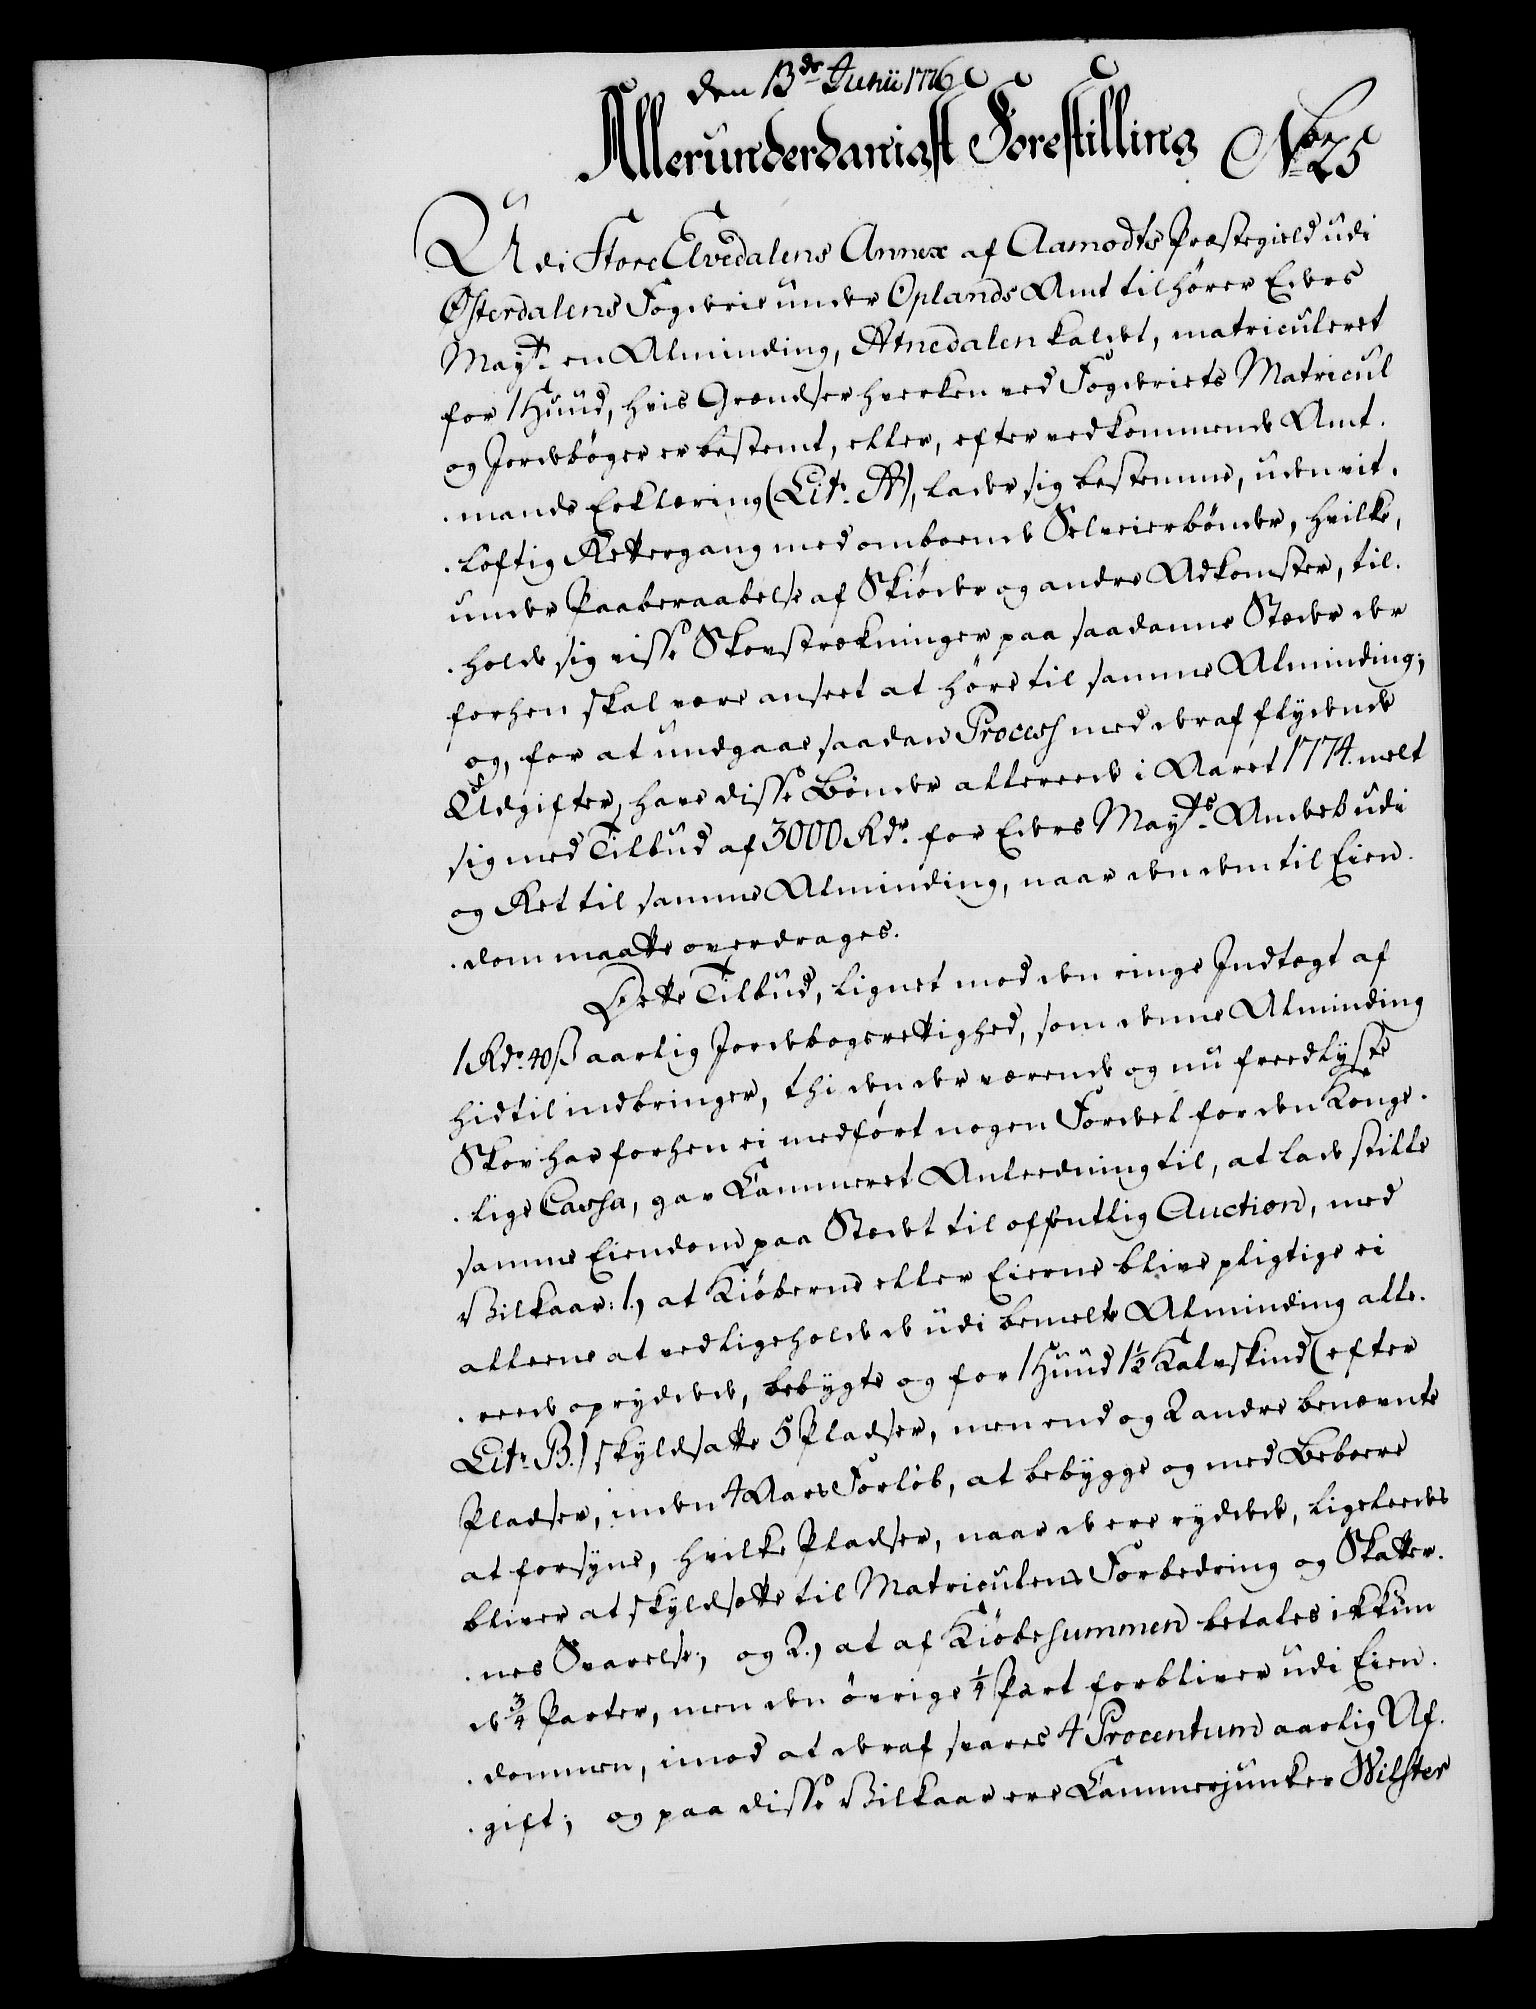 den 13de Junii 1776
Allerunderdanigst Forestilling No 25
Udi Store Elvedalens Annex af Aamodts Præstegield udi
Østerdalens Fogderie under Oplands Amt tilhører Eders
Mayt. en Alminding, Atnedalen kaldet, matriculeret
for 1 Huud, hvis Grændser hverken ved Fogderiets Matricul
og Jordebøger er bestemt, eller, efter vedkommende Amt-
mands Erklæring (Litr. A), lader sig bestemme, uden vit-
løftig Rettergang med omboende Selveierbønder, hvilke,
under Paaberaabelse af Skiøder og andre Adkomster, til-
holde sig visse Skovstrækninger paa saadanne Stæder der
forhen skal være anseet at høre til samme Alminding;
og, for at undgaae saadan Process med deraf flydende
Udgifter, have disse Bønder allereede i Aaret 1774 meldt
sig med Tilbud af 3000 Rdr. for Eders Mayts. Andeel udi
og Ret til samme Alminding, naar den dem til Eien-
dom maatte overdrages.
Dette Tilbud, lignet mod den ringe Indtægt af
1 Rdr. 40 ß aarlig Jordebogsrettighed, som denne Alminding
hidtil indbringer, thi den der værende og nu freedlyste
Skov har forhen ei medført nogen Fordeel for den Konge-
lige Cassa, gav Kammeret Anleedning til, at lade stille
samme Eiendom paa Stedet til offentlig Auction, med
Vilkaar: 1.) at Kiøberne eller Eierne blive pligtige ei
alleene at vedligeholde de udi bemelte Alminding alle-
reede opryddede, bebygte og for 1 Huud 1½ Kalvskind (efter
Litr. B.) skyldsatte 5 Pladser, men end og 2 andre benævnte
Pladser, inden 4 Aars Forløb, at bebygge og med Beboere
at forsyne, hvilke Pladser, naar de ere ryddede, ligeleedes
bliver at skyldsætte til Matriculens Forbedring og Skatter-
nes Svarelse; og 2.) at af Kiøbesummen betales ikkun
de ¾ Parter, men den øvrige ¼ Part forbliver udi Eien-
dommen, imod at deraf svares 4 Procentum aarlig Af-
gift; og paa disse Vilkaar ere Kammerjunker Wilster